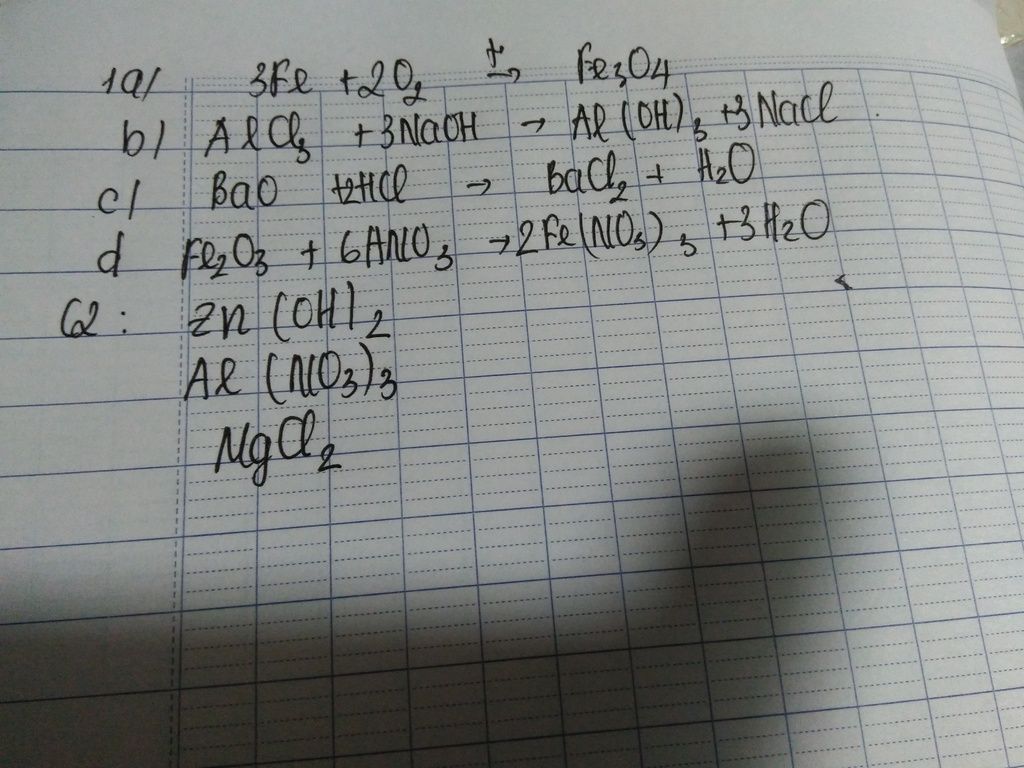 1a/ 3Fe + 2O₂ →ᵗ Fe₃O₄
b/ AlCl₃ + 3NaOH → Al(OH)₃ + 3NaCl
c/ BaO + 2HCl → BaCl₂ + H₂O
d Fe₂O₃ + 6HNO₃ → 2Fe(NO₃)₃ + 3H₂O
C2: Zn(OH)₂
Al(NO₃)₃
MgCl₂